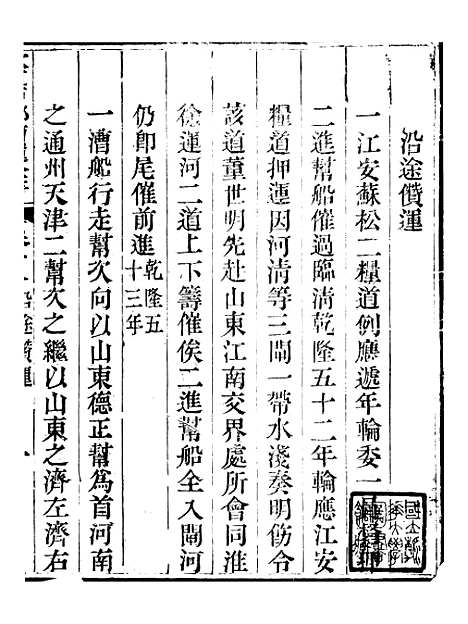 沿途儹運
一江安蘇松二糧道例應遞年輪委一員
二進幫船催過臨清乾隆五十二年輪應江安
糧道押運因河清等三閘一帶水淺奏明仿令
該道董世明先赴山東江南交界處所會同淮
徐運河二道上下籌催俟二進幫船全入閘河
仍卽尾催前進乾隆五十三年
一漕船行走幫次向以山東德正幫爲首河南
之通州天津二幫次之繼以山東之濟左濟右
沿途儹運